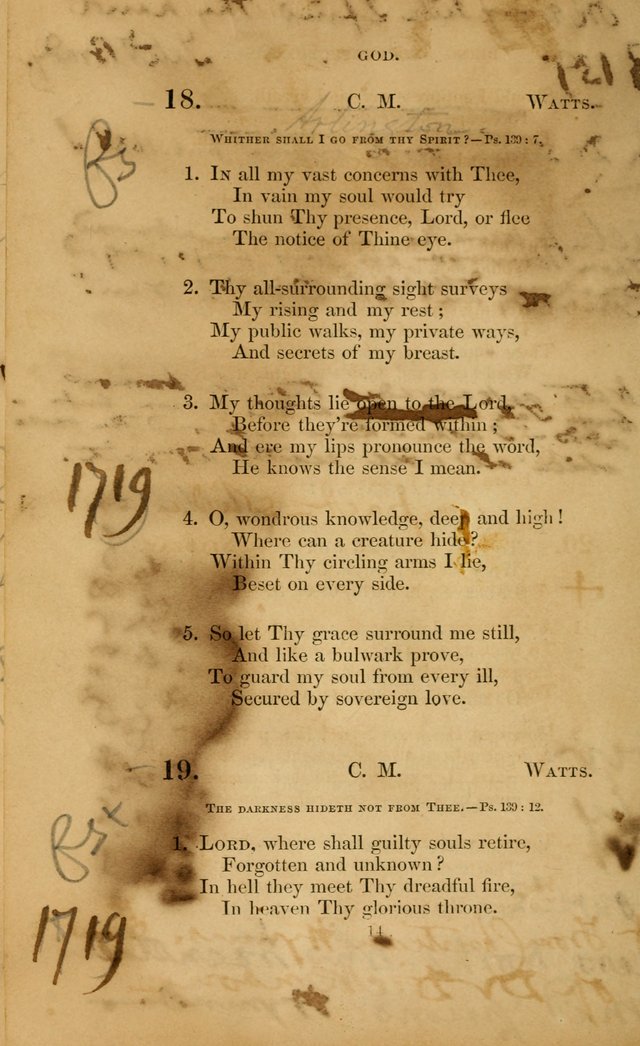 GOD.
18. C. M. WATTS.
Arlington
WHITHER SHALL I GO FROM THY SPIRIT?—Ps. 139: 7.
Ps
1. IN all my vast concerns with Thee,
In vain my soul would try
To shun Thy presence, Lord, or flee
The notice of Thine eye.
2. Thy all-surrounding sight surveys
My rising and my rest;
My public walks, my private ways,
And secrets of my breast.
3. My thoughts lie open to the Lord,
Before they're formed within;
And ere my lips pronounce the word,
He knows the sense I mean.
1719
4. O, wondrous knowledge, deep and high!
Where can a creature hide?
Within Thy circling arms I lie,
Beset on every side.
5. So let Thy grace surround me still,
And like a bulwark prove,
To guard my soul from every ill,
Secured by sovereign love.
19. C. M. WATTS.
THE DARKNESS HIDETH NOT FROM THEE.—Ps. 139: 12.
Ps x
1. LORD, where shall guilty souls retire,
Forgotten and unknown?
In hell they meet Thy dreadful fire,
In heaven Thy glorious throne.
1719
14